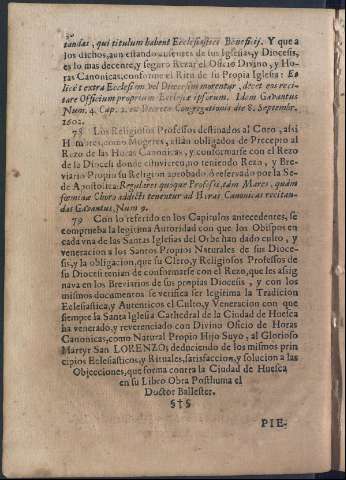 30
tandas, qui titulum habent Ecclesiastici Beneficij. Y que a
los dichos, aun estando ausentes de sus Iglesias, y Diocesis,
es lo mas decente, y seguro Rezar el Oficio Divino, y Ho-
ras Canonicas, conforme el Ritu de su Propia Iglesia: Et
licèt extra Ecclesiam vel Diœcesim morentur, decet eos reci-
tare Officium proprium Ecclesiæ ipsorum. Idem Gavantus
Num. 4. Cap. 2. ex Decreto Congregationis die 8. Septembr.
1602.
78 Los Religiosos Professos destinados al Coro, assi
Hombres, como Mugeres, estàn obligados de Precepto al
Rezo de las Horas Canonicas, y conformarse con el Rezo
de la Diocesi donde estuvieren, no teniendo Rezo, y Bre-
viario Propio su Religion aprobado, ò reservado por la Se-
de Apostolica: Regulares quoque Professi, tàm Mares, quàm
formine Choro addicti tenentur ad Horas Canonicas recitan-
das Gavantus, Num 9.
79 Con lo referido en los Capitulos antecedentes, se
comprueba la legitima Autoridad con que los Obispos en
cada vna de las Santas Iglesias del Orbe han dado culto, y
veneracion a los Santos Propios Naturales de sus Dioce-
sis, y la obligacion, que su Clero, y Religiosos Professos de
su Diocesi tenian de conformarse con el Rezo, que les asig
nava en los Breviarios de sus propias Diocesis, y con los
mismos documentos se verifica ser legitima la Tradicion
Eclesiastica, y Autenticos el Culto, y Veneracion con que
siempre la Santa Iglesia Cathedral de la Ciudad de Huesca
ha venerado, y reverenciado con Divino Oficio de Horas
Canonicas, como Natural Propio Hijo Suyo, al Glorioso
Martyr San LORENZO; deduciendo de los mismos prin
cipios Eclesiasticos, y Rituales, satisfaccion, y solucion a las
Objecciones, que forma contra la Ciudad de Huesca
en su Libro Obra Posthuma el
Doctor Ballester.
§†§
PIE-